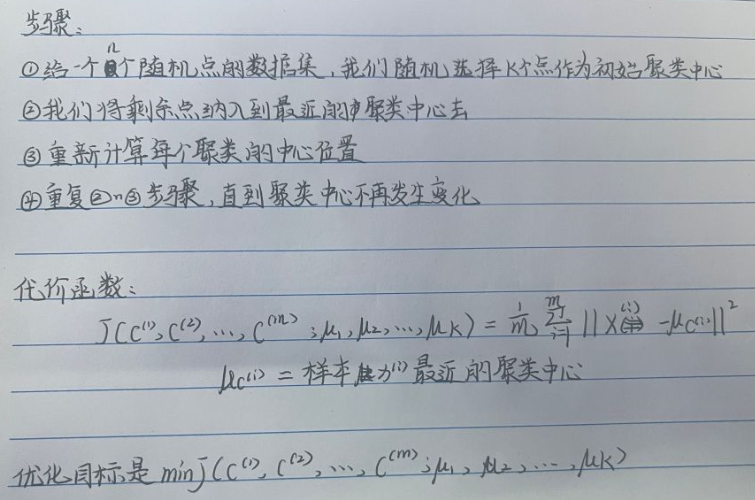 步骤:
①给一个n个随机点的数据集,我们随机选择K个点作为初始聚类中心
②我们将剩余点纳入到最近的聚类中心去
③重新计算每个聚类的中心位置
④重复②~③步骤,直到聚类中心不再发生变化
代价函数:
J(C⁽¹⁾, C⁽²⁾, ..., C⁽ᵐ⁾; μ₁, μ₂, ..., μK) = 1/m ∑ᵢ₌₁ᵐ ||X⁽ⁱ⁾ - μC⁽ⁱ⁾||²
μC⁽ⁱ⁾ = 样本⁽ⁱ⁾最近的聚类中心
优化目标是 min J(C⁽¹⁾, C⁽²⁾, ..., C⁽ᵐ⁾; μ₁, μ₂, ..., μK)